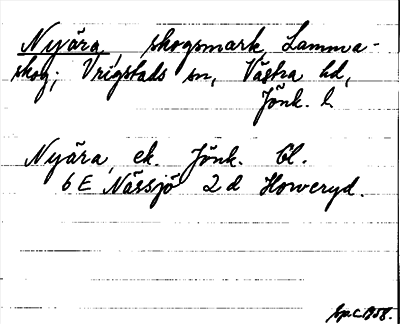 Nyära, skogsmark, Lamma-
skog; Vrigstads sn, Västra hd,
Jönk. l.
Nyära, ek. Jönk. bl.
6 E Nässjö 2 d Howeryd.
1958.